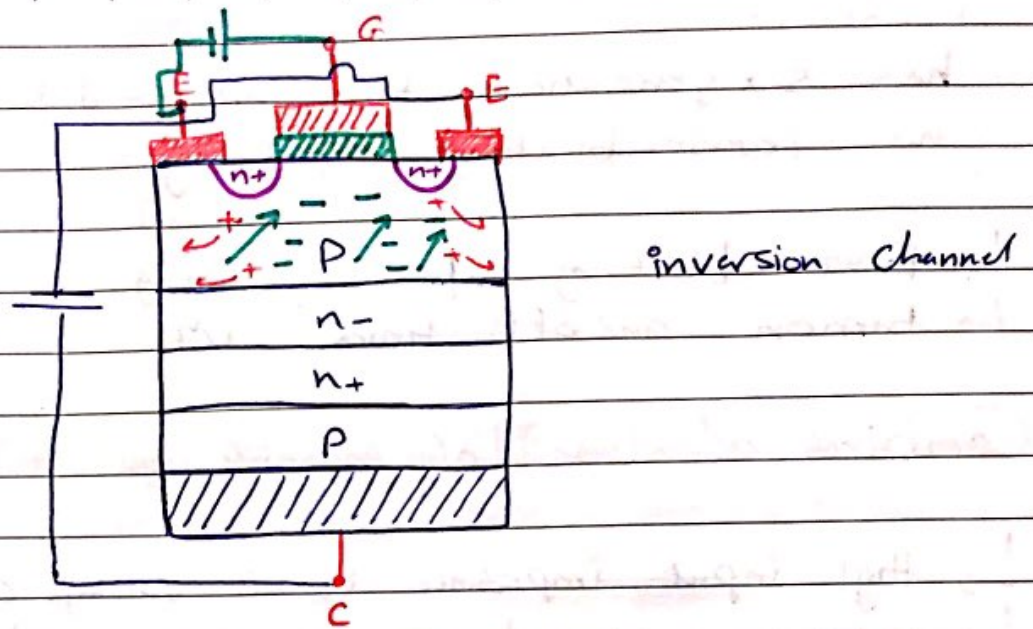 G
E
E
n+
n+
+
- -
+
+
-
P
-
-
-
+
inversion channel
n-
n+
P
C